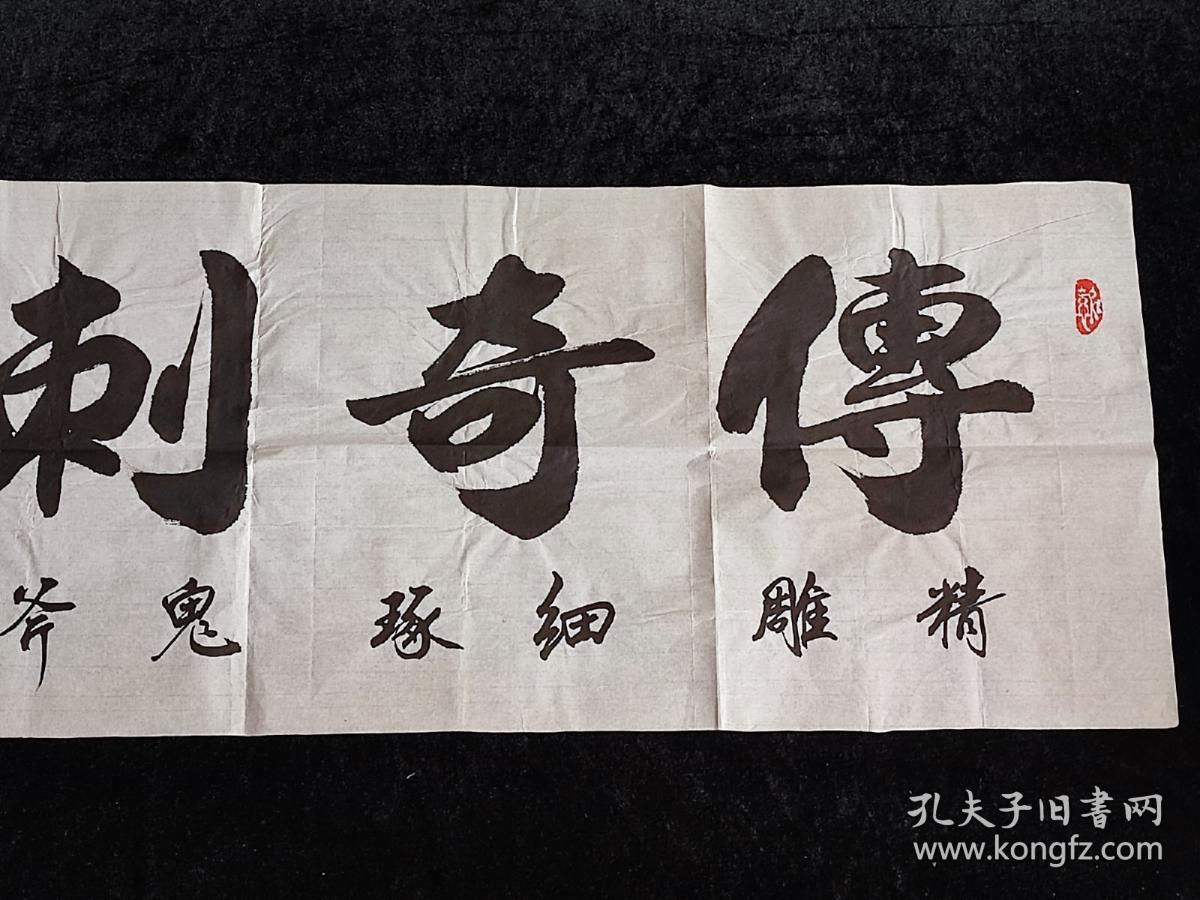 傳奇刺
精雕細琢鬼斧
孔夫子旧書网
www.kongfz.com